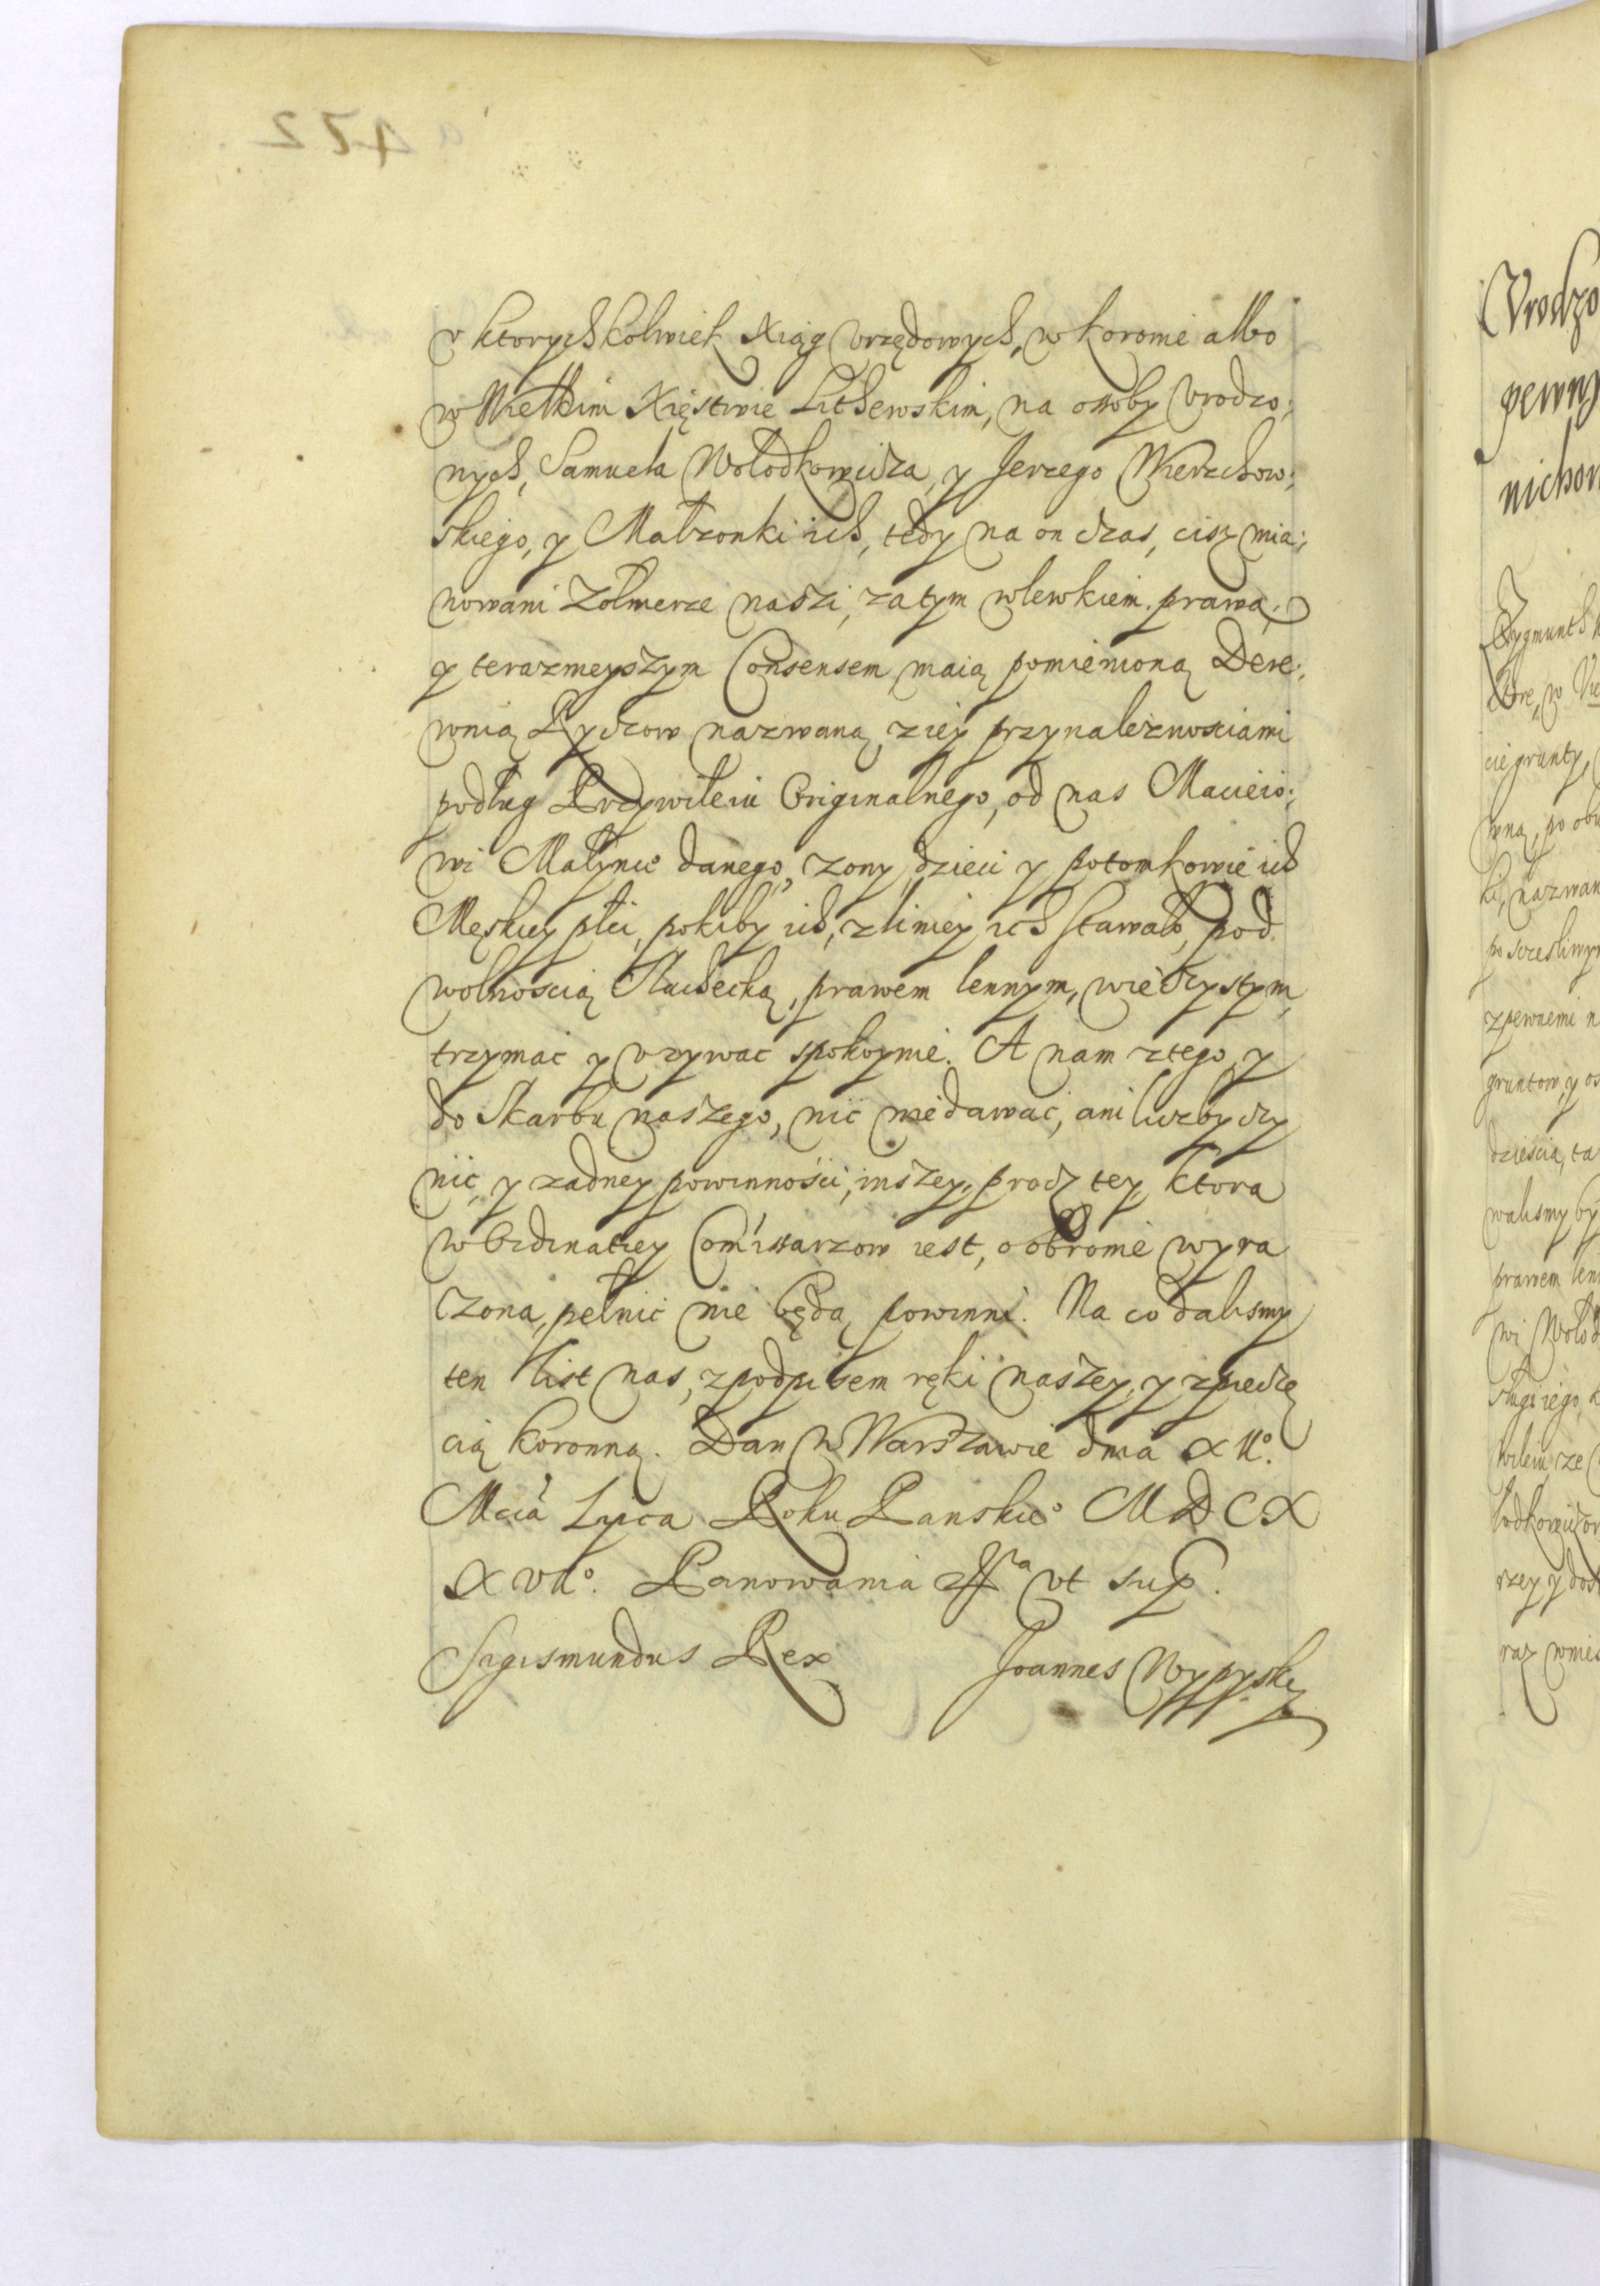 v ktorychkolwiek Xiąg vrzędowych, w koronie albo
w Wielkim Xięstwie Lithewskim, na osoby vrodzo:
nych, Samuela Wołodkowicza, y Jerzego Wierzchow:
skiego, y Małzonki ich, tedy na on czas, cisz mia:
nowani Zołnierze naszi, za tym wlewkiem prawa,
y teraznieyszym Consensem maią pomienioną Dere:
wnią Ryczow nazwaną, z iey przynaleznosciami
podług Przywileiu Originalnego, od nas Macieio:
wi danego, zony dzieci y potomkowie ich
Męskiey płci, pokiby ich, z liniey ich stawało, pod
wolnoscią Slachecką, prawem lennym, wieczystym,
trzymac y vzywac spokoynie. A nam z tego, y
do Skarbu naszego, nic nie dawać, ani liczby czy
nić, y zadney powinności, inszey, procz tey, ktora
w Ordinatiey Comissarzow iest, o obronie wyra
zona, pełnić nie będą powinni. Na co dalismy
ten list nas, z podpisem ręki naszey, y z pieczę
cią koronną. Dan w Warszawie dnia
Mcia Lipca Roku Panskie° M D C X
X VII°. Panowania vt sup.
Sigismundus Rex Joannes Wypysky
Vrodzo
pewny
nichow
Zygmunth
ktore, w
cie grunty,
wną, po obu
ki, nazwan
po szczesliwym
z pewnemi n
gruntow, y os
dziescia, ta
walismy by
prawem lenn
wi Wołod
sługi iego,
wileiu ze
łodkowiczow
rzey y dos
raz wmies